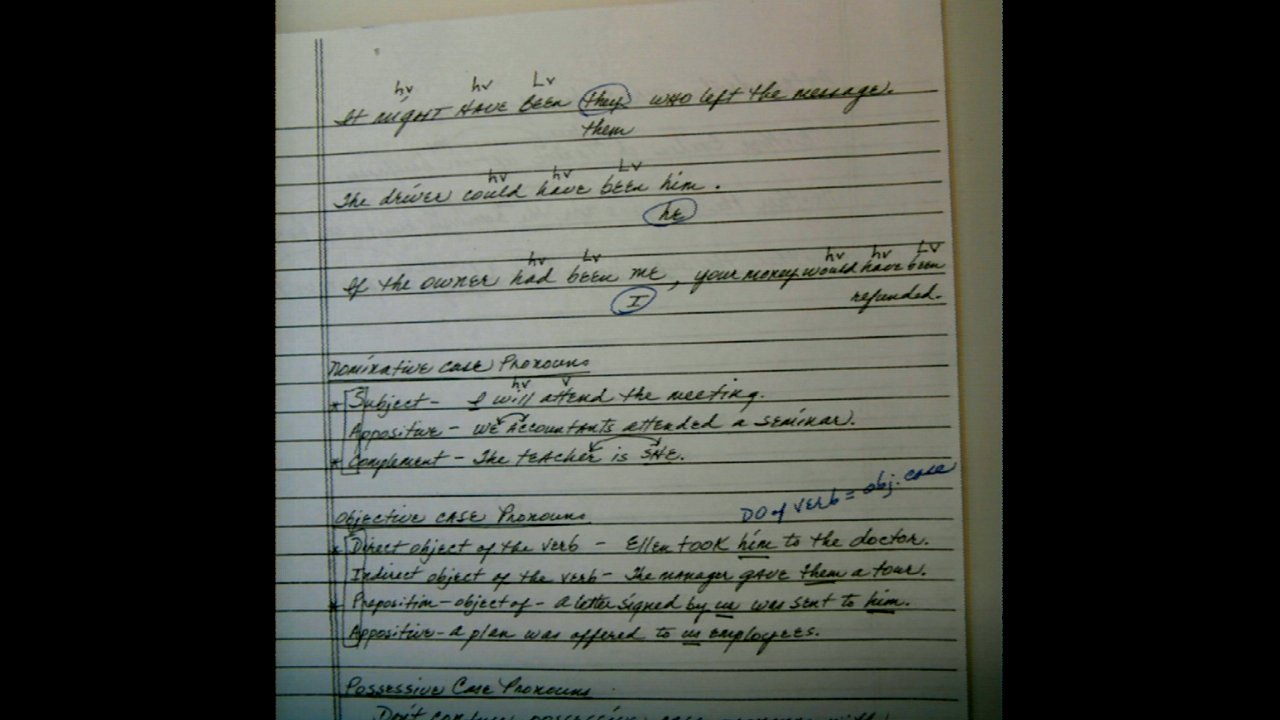 hv hv Lv
It might have been they who left the message.
them
hv hv Lv
The driver could have been him.
he
hv Lv hv hv LV
If the owner had been me, your money would have been
I refunded.
Nominative case Pronouns
hv v
* Subject - I will attend the meeting.
Appositive - we Accountants attended a seminar.
* Complement - The teacher is SHE.
DO of verb = obj. case
Objective case Pronouns
* Direct object of the verb - Ellen took him to the doctor.
Indirect object of the verb - The manager gave them a tour.
* Preposition - object of - a letter signed by us was sent to him.
Appositive - a plan was offered to us employees.
Possessive Case Pronouns
Don't confuse possessive case pronouns with